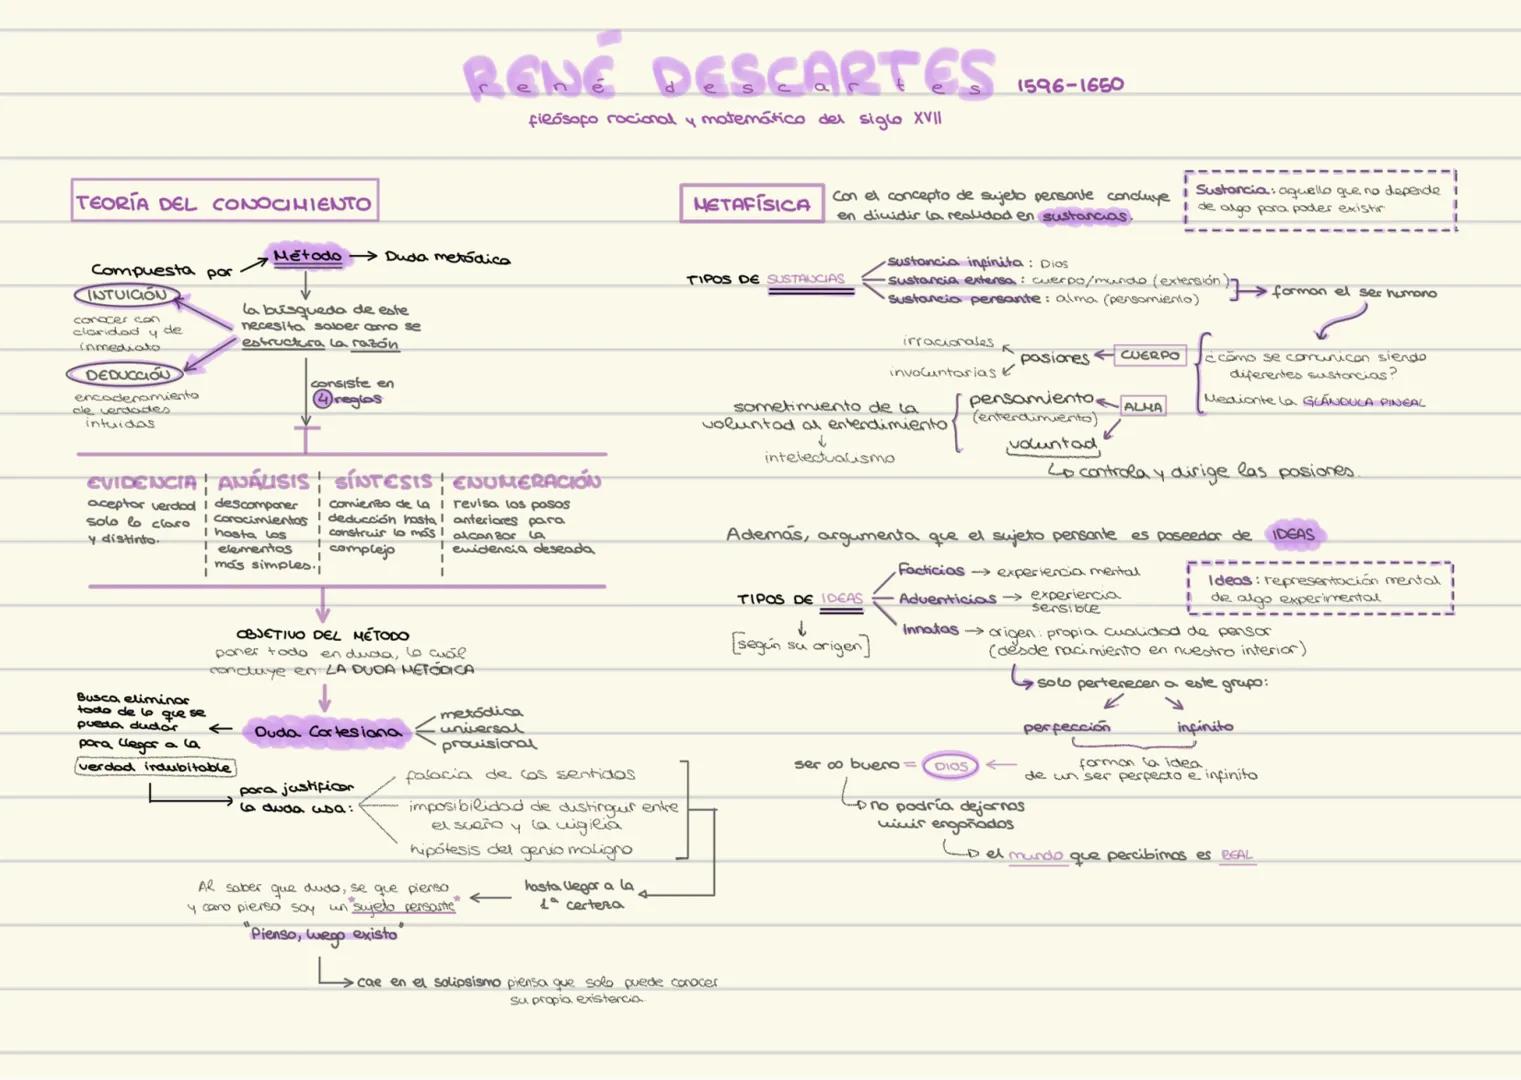 RENÉ DESCARTES
rené descartes
1596-1650
filósofo racional y matemático del siglo XVII
TEORÍA DEL CONOCIMIENTO
Método → Duda metódica
Compuesta por
INTUICIÓN
conocer con
claridad y de
inmediato
DEDUCCIÓN
encadenamiento
de verdades
intuidas
la búsqueda de este
necesita saber como se
estructura la razón
consiste en
4 reglas
EVIDENCIA
aceptar verdad
solo lo claro
y distinto.
ANÁLISIS
descomponer
conocimientos
hasta los
elementos
más simples.
SÍNTESIS
comienzo de la
deducción hasta
construir lo más
complejo
ENUMERACIÓN
revisa los pasos
anteriores para
alcanzar la
evidencia deseada
OBJETIVO DEL MÉTODO
poner todo en duda, lo cuál
concluye en: LA DUDA METÓDICA
Busca eliminar
todo de lo que se
pueda dudar
para llegar a la
verdad indubitable
Duda Cartesiana
metódica
universal
provisional
para justificar
la duda usa:
falacia de los sentidos
imposibilidad de distinguir entre
el sueño y la vigilia
hipótesis del genio maligno
hasta llegar a la
1ª certeza
Al saber que dudo, se que pienso
y como pienso soy un "sujeto pensante"
"Pienso, luego existo"
cae en el solipsismo piensa que solo puede conocer
su propia existencia
METAFÍSICA
Con el concepto de sujeto pensante concluye
en dividir la realidad en sustancias.
Sustancia: aquello que no depende
de algo para poder existir
TIPOS DE SUSTANCIAS
sustancia infinita: Dios
sustancia extensa: cuerpo/mundo (extensión)
sustancia pensante: alma (pensamiento)
forman el ser humano
¿cómo se comunican siendo
diferentes sustancias?
Mediante la GLÁNDULA PINEAL
CUERPO
pasiones
irracionales
involuntarias
ALMA
pensamiento
(entendimiento)
voluntad
sometimiento de la
voluntad al entendimiento
↓
intelectualismo
controla y dirige las pasiones.
Además, argumenta que el sujeto pensante es poseedor de IDEAS
Ideas: representación mental
de algo experimental
TIPOS DE IDEAS
[según su origen]
Facticias → experiencia mental
Adventicias → experiencia
sensible
Innatas → origen: propia cualidad de pensar
(desde nacimiento en nuestro interior)
solo pertenecen a este grupo:
perfección
infinito
forman la idea
de un ser perfecto e infinito
ser ∞ bueno = DIOS
no podría dejarnos
vivir engañados
el mundo que percibimos es REAL